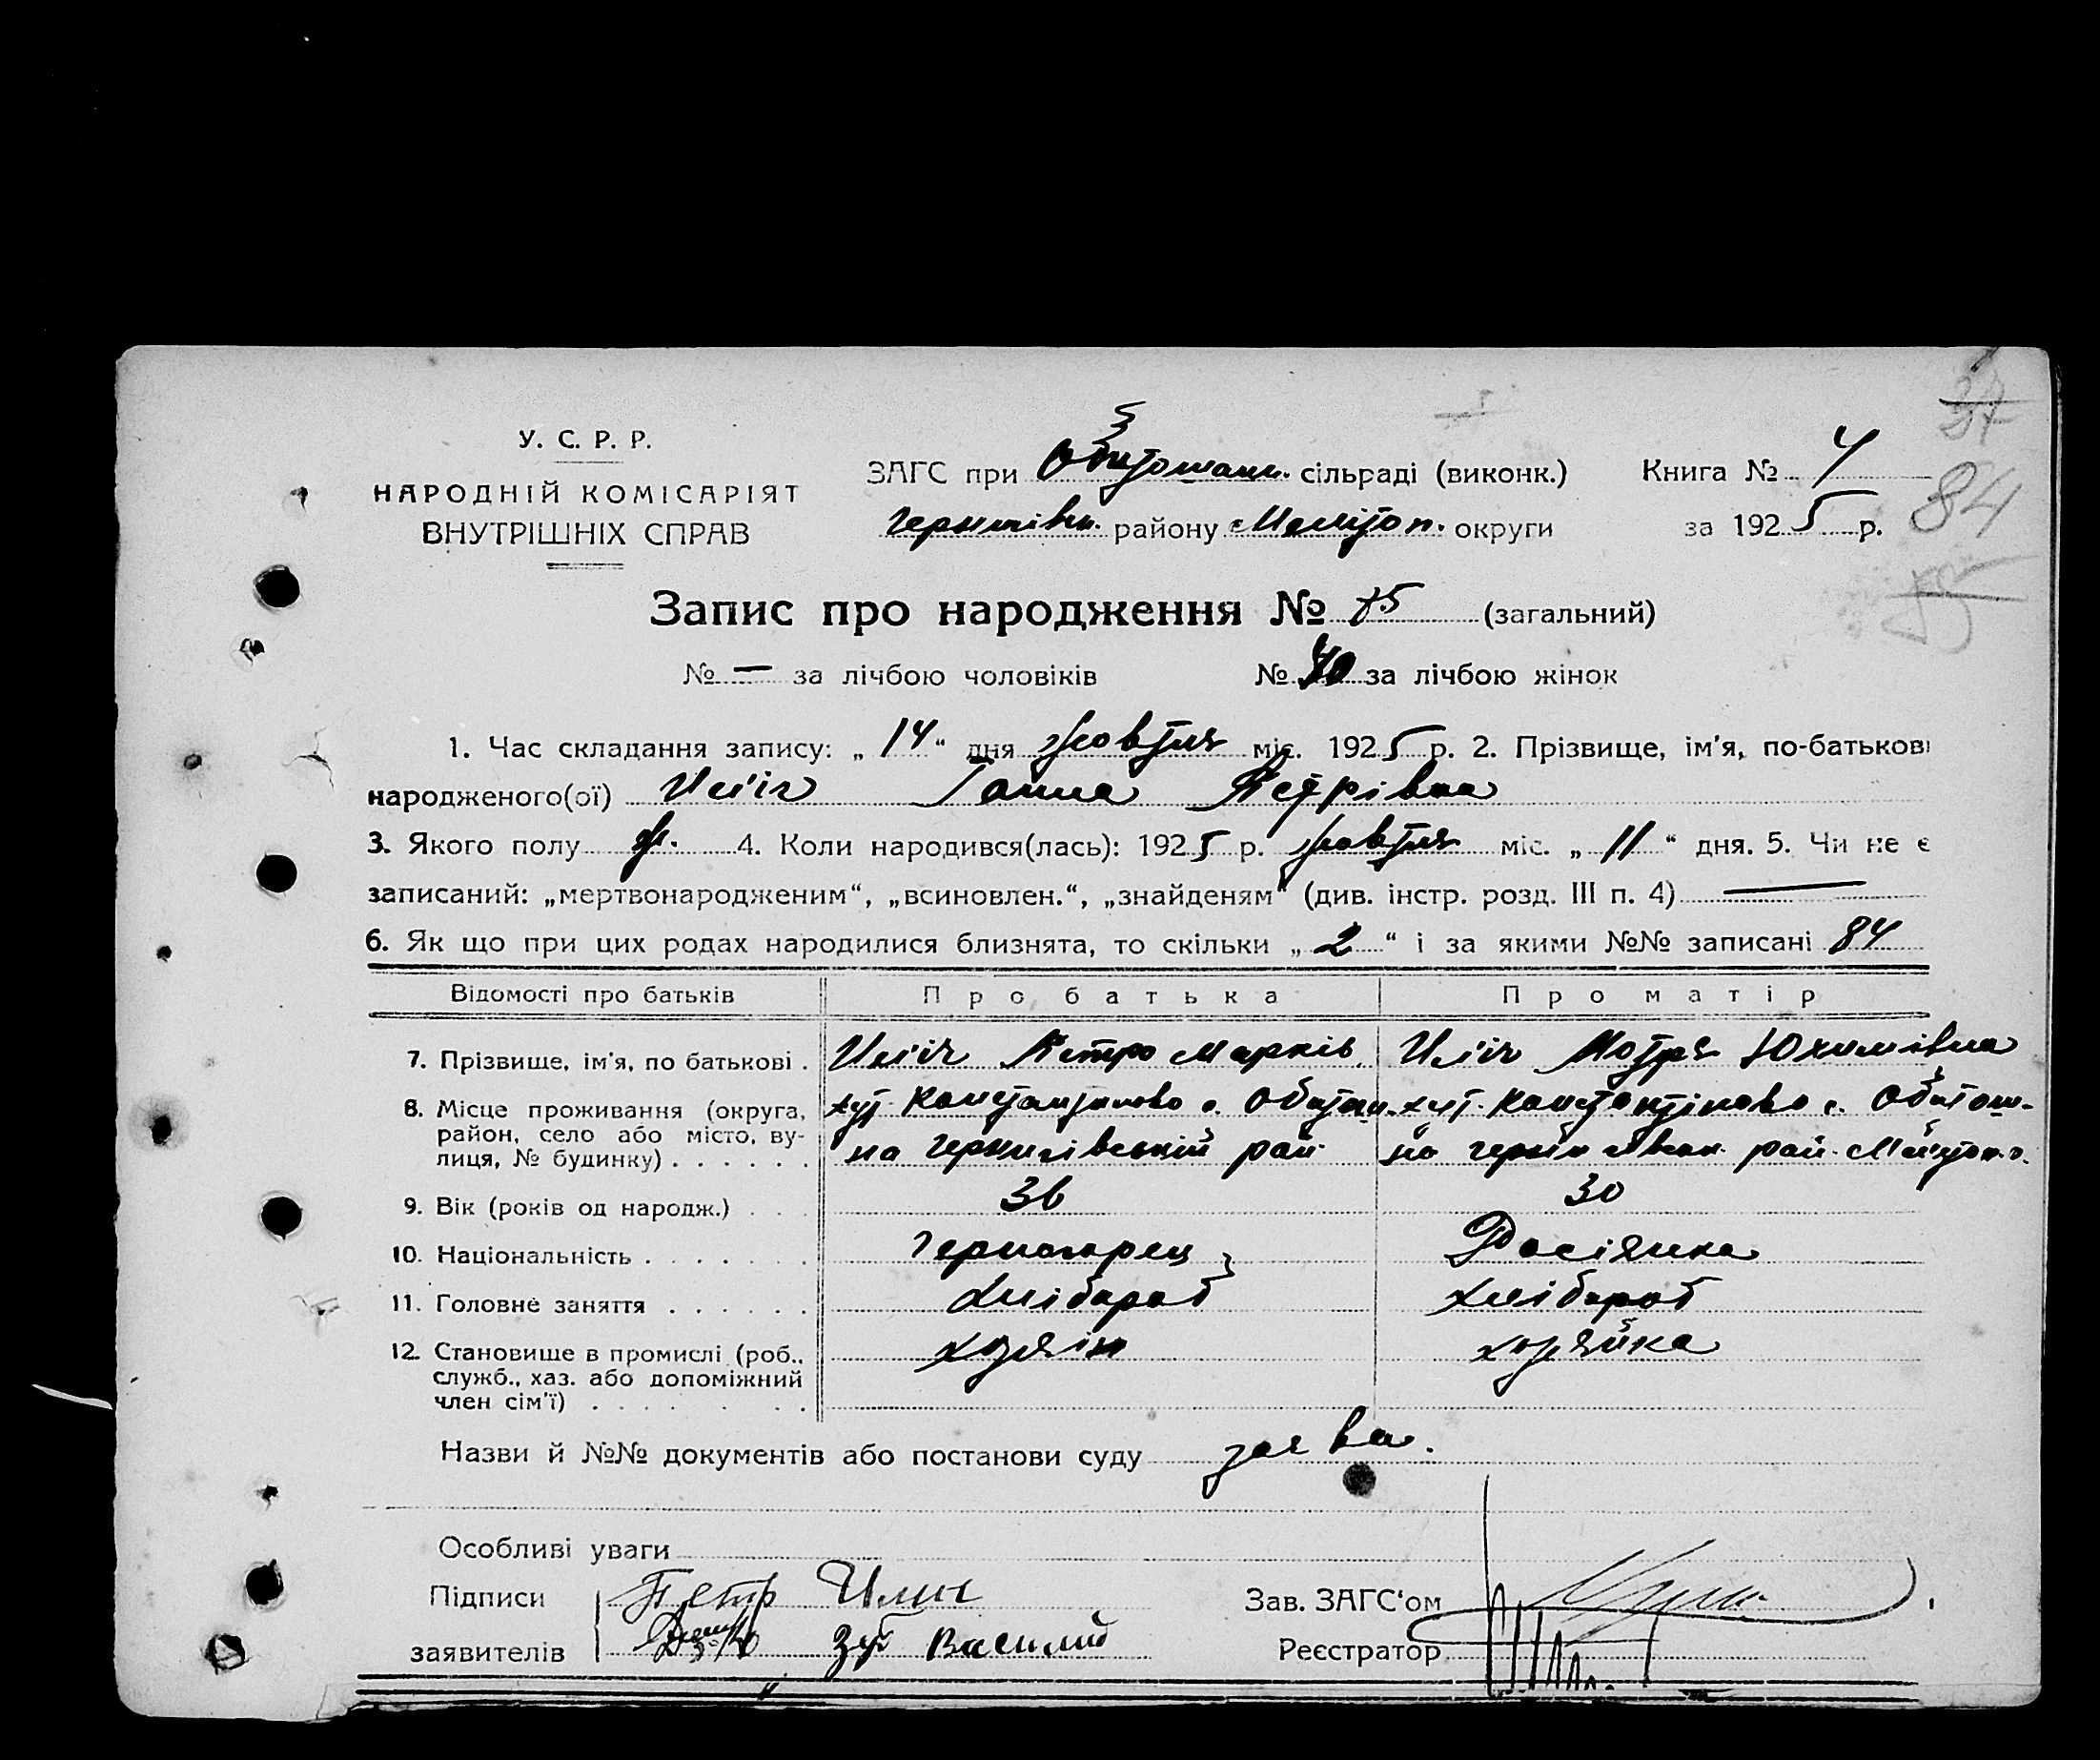 У. С. Р. Р.
НАРОДНІЙ КОМІСАРІЯТ
ВНУТРІШНІХ СПРАВ
ЗАГС при Обиточан. сільраді (виконк.)
Чернигівськ. району Мелітоп. округи
Книга № 4
за 1925 р.
84
Запис про народження № 85 (загальний)
№ — за лічбою чоловіків № 40 за лічбою жінок
1. Час складання запису: „ 14 “ дня жовтня міс. 1925 р. 2. Прізвище, ім'я, по-батькові
народженого(ої) Иліч Ганна Петрівна
3. Якого полу ж. 4. Коли народився(лась): 1925 р. жовтня міс. „ 11 “ дня. 5. Чи не є
записаний: „мертвонародженим“, „всиновлен.“, „знайденям“ (див. інстр. розд. III п. 4) —
6. Як що при цих родах народилися близнята, то скільки „ 2 “ і за якими №№ записані 84
Відомості про батьків Про батька Про матір
7. Прізвище, ім'я, по батькові . Иліч Петро Марків. Иліч Мотря Юхимівна
8. Місце проживання (округа, район, село або місто, вулиця, № будинку) . . . . . .
хут. Константиново с. Обиточ.
на Чернигівський рай
хут. Константіново с. Обиточ.
на рай. Мелітоп. о.
9. Вік (років од народж.) . . . 36 30
10. Національність . . . . . . . Черногорец Росіянка
11. Головне заняття . . . . . . Хлібороб хлібороб
12. Становище в промислі (роб., служб., хаз. або допоміжний член сім'ї) . . . . . . . хозяін хозяйка
Назви й №№ документів або постанови суду заява.
Особливі уваги
Підписи Петр Илич
заявителів Зуб Василий
Зав. ЗАГС'ом
Реєстратор